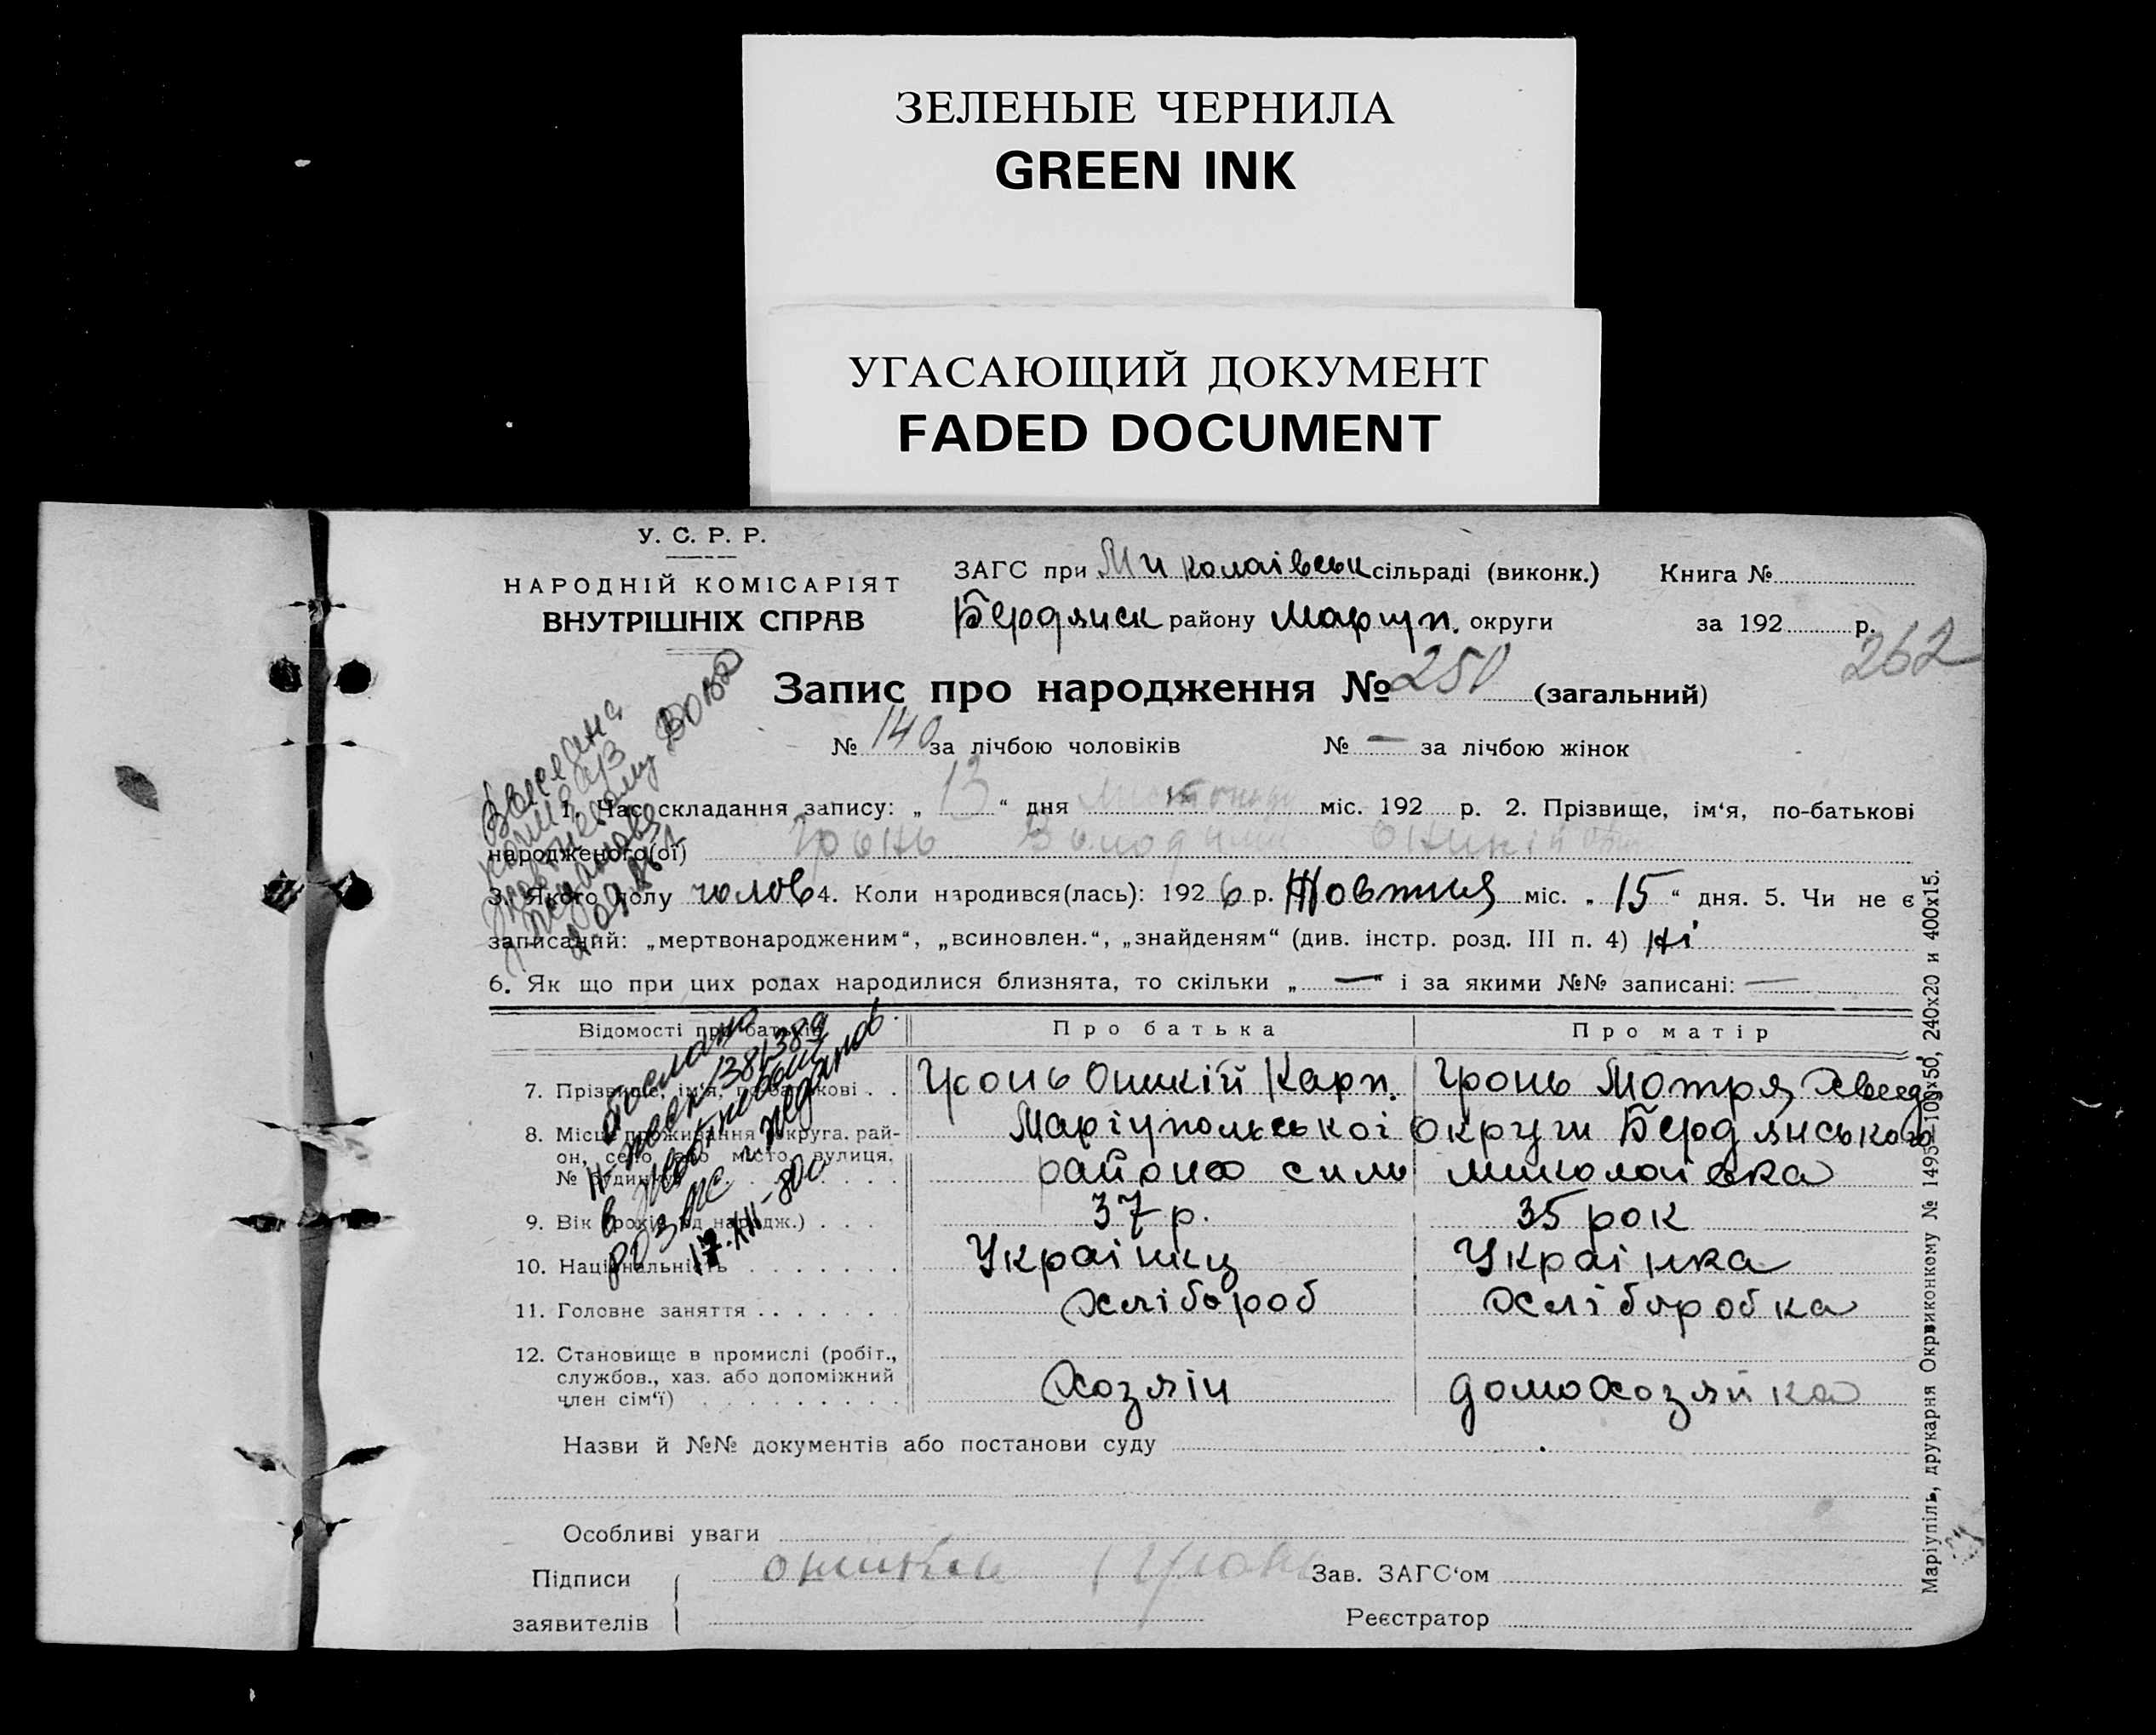 ЗЕЛЕНЫЕ ЧЕРНИЛА
GREEN INK
УГАСАЮЩИЙ ДОКУМЕНТ
FADED DOCUMENT
У. С. Р. Р.
НАРОДНІЙ КОМІСАРІЯТ
ВНУТРІШНІХ СПРАВ
ЗАГС при Миколаівськ сільраді (виконк.) Книга №
Бердянск району Маріуп. округи за 192 р.
262
Запис про народження № 250 (загальний)
№ 140 за лічбою чоловіків № — за лічбою жінок
1. Час складання запису: „ 13 “ дня міс. 192 р. 2. Прізвище, ім‘я, по-батькові
народженого(ої) Гронь
3. Якого полу чолов 4. Коли народився(лась): 192 6 р. Жовтня міс. „ 15 “ дня. 5. Чи не є
записаний: „мертвонародженим“, „всиновлен.“, „знайденям“ (див. інстр. розд. III п. 4) Ні
6. Як що при цих родах народилися близнята, то скільки „ — “ і за якими №№ записані: —
Відомості про батьків Про батька Про матір
7. Прізвище, ім‘я, по-батькові . . Гронь Оникій Карп. Гронь Мотря Хвед
8. Місце проживання округа. рай- Маріупольської Округи Бердянського
он, село або місто, вулиця. району село Миколаівка
№ будинку
9. Вік (років од народж.) . . . 37 р. 35 рок
10. Національність Украінец Украінка
11. Головне заняття Хлібороб Хліборобка
12. Становище в промислі (робіт.,
службов., хаз. або допоміжний Хозяін домохозяйка
член сім‘ї)
Назви й №№ документів або постанови суду
Особливі уваги
Підписи Гронь Зав. ЗАГС‘ом
заявителів Реєстратор
17.XII-80
Маріупіль, друкарня Окрвиконкому № 1495—100х50, 240х20 и 400х15.